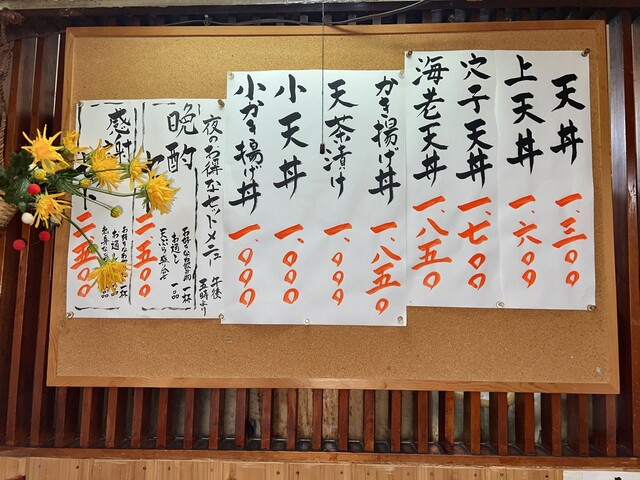 天丼 一、三〇〇
上天丼 一、六〇〇
穴子天丼 一、七〇〇
海老天丼 一、八五〇
かき揚げ丼 一、八五〇
天茶漬け 一、〇〇〇
小天丼 一、〇〇〇
小かき揚げ丼 一、〇〇〇
夜のお得なセットメニュー 午後五時より
晩酌
お好きなお飲物 一杯
お通し
天ぷら盛り合せ 一品
二、五〇〇
感謝
お通し
二、五〇〇